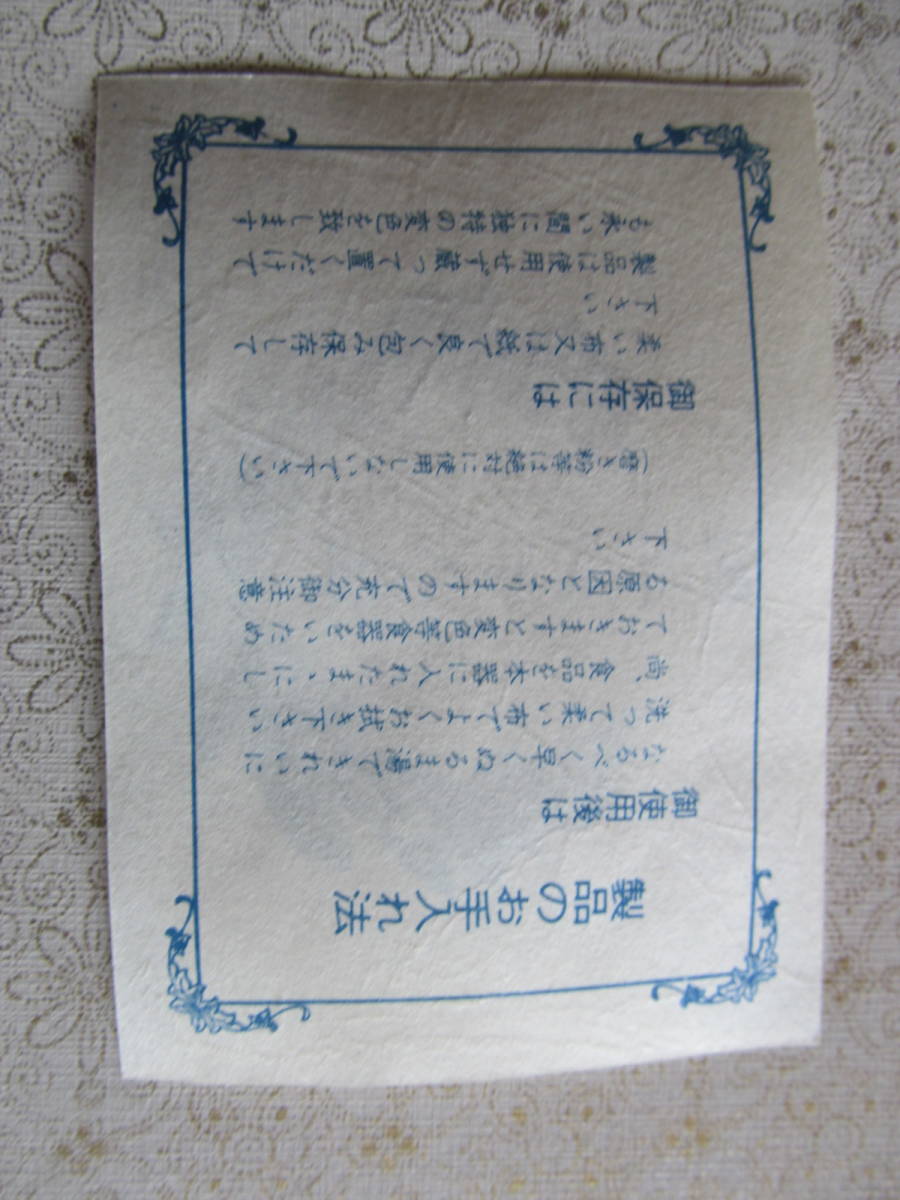 製品のお手入れ法
御使用後は
なるべく早くぬるま湯できれいに
洗って柔い布でよくお拭き下さい
尚、食品を本器に入れたまゝにし
ておきますと変色等食器をいため
る原因となりますので充分御注意
下さい
(磨き粉等は絶対に使用しないで下さい)
御保存には
柔い布又は紙で良く包み保存して
下さい
製品は使用せず蔵って置くだけで
も永い間に独特の変色を致します